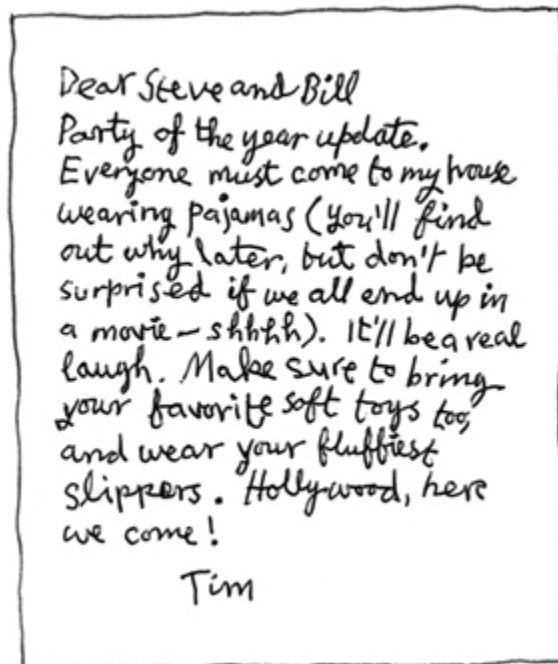 Dear Steve and Bill
Party of the year update.
Everyone must come to my house
wearing pajamas (you'll find
out why later, but don't be
surprised if we all end up in
a movie – shhhh). It'll be a real
laugh. Make sure to bring
your favorite soft toys too,
and wear your fluffiest
slippers. Hollywood, here
we come!
Tim